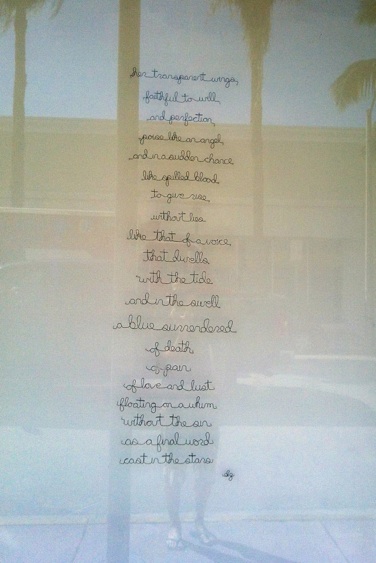 her transparent wings,
faithful to will,
and perfection,
poise like an angel,
and in a sudden chance
like spilled blood,
to give rise,
without lies
like that of a voice,
that dwells
with the tide
and in the swell
a blue surrendered
of death
of pain
of love and lust
floating on a whim
without the sin
as a final word
cast in the stars